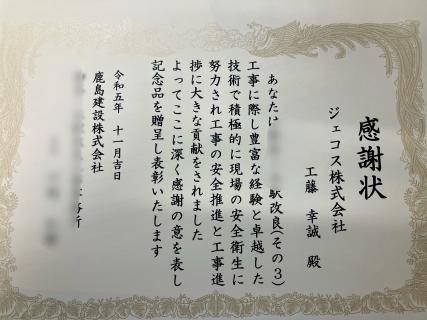 感謝状
ジェコス株式会社
工藤 幸誠 殿
あなたは 駅改良(その3)
工事に際し豊富な経験と卓越した
技術で積極的に現場の安全衛生に
努力され工事の安全推進と工事進
捗に大きな貢献をされました
よってここに深く感謝の意を表し
記念品を贈呈し表彰いたします
令和五年 十一月吉日
鹿島建設株式会社
所